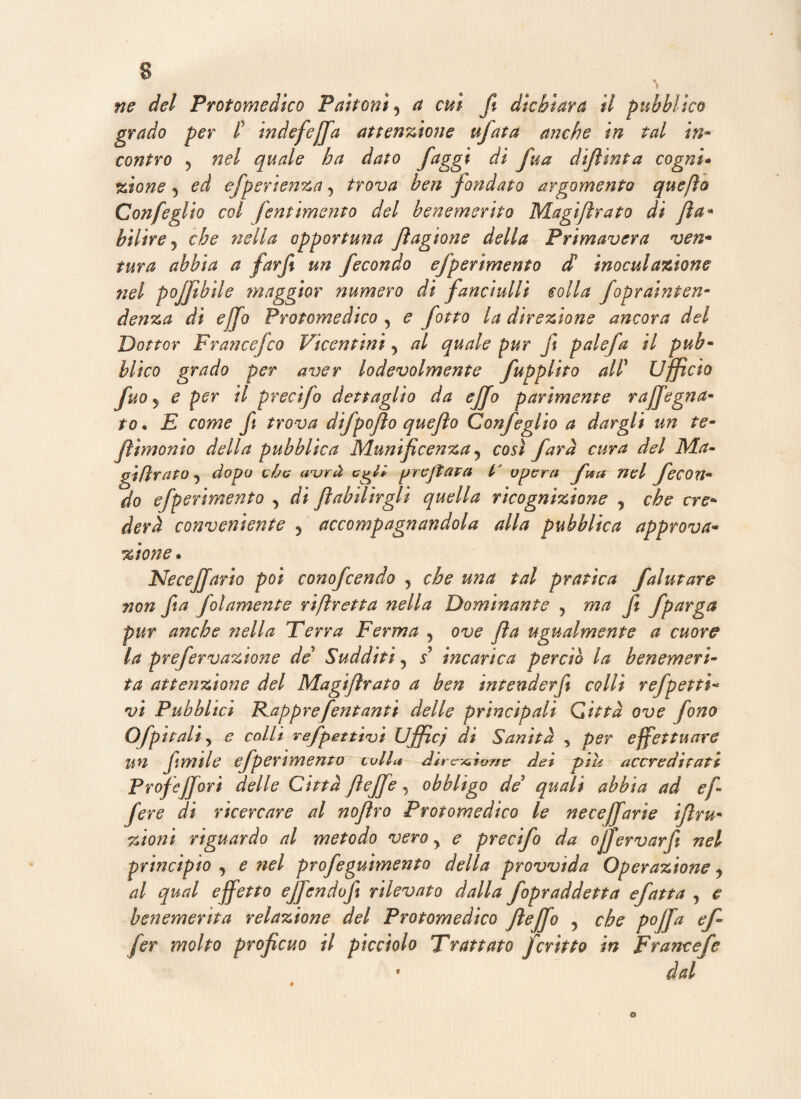 8
ne del Protomedico Paitoni, a cui ſi dichiara il pubblico
grado per l' indefeſſa attenzione uſata anche in tal in-
contro, nel quale ha dato ſaggi di ſua diſtinta cogni-
zione, ed eſperienza, trova ben fondato argomento queſto
Conſeglio col ſentimento del benemerito Magiſtrato di ſta-
bilire, che nella opportuna ſtagione della Primavera ven-
tura abbia a farſi un ſecondo eſperimento d' inoculazione
nel poſſibile maggior numero di fanciulli colla ſoprainten-
denza di eſſo Protomedico, e ſotto la direzione ancora del
Dottor Franceſco Vicentini, al quale pur ſi paleſa il pub-
blico grado per aver lodevolmente ſupplito all' Ufficio
ſuo, e per il preciſo dettaglio da eſſo parimente raſſegna-
to. E come ſi trova diſpoſto queſto Conſeglio a dargli un te-
ſtimonio della pubblica Munificenza, così ſarà cura del Ma-
giſtrato, dopo che avrà egli preſtata l' opera ſua nel ſecon-
do eſperimento, di ſtabilirgli quella ricognizione, che cre-
derà conveniente, accompagnandola alla pubblica approva-
zione.
Neceſſario poi conoſcendo, che una tal pratica ſalutare
non ſia ſolamente riſtretta nella Dominante, ma ſi ſparga
pur anche nella Terra Ferma, ove ſta ugualmente a cuore
la preſervazione de' Sudditi, s' incarica perciò la benemeri-
ta attenzione del Magiſtrato a ben intenderſi colli reſpetti-
vi Pubblici Rappreſentanti delle principali Città ove ſono
Oſpitali, e colli reſpettivi Ufficj di Sanità, per effettuare
un ſimile eſperimento colla direzione dei più accreditati
Profeſſori delle Città ſteſſe, obbligo de' quali abbia ad eſ-
ſere di ricercare al noſtro Protomedico le neceſſarie iſtru-
zioni riguardo al metodo vero, e preciſo da oſſervarſi nel
principio, e nel proſeguimento della provvida Operazione,
al qual effetto eſſendoſi rilevato dalla ſopraddetta eſatta, e
benemerita relazione del Protomedico ſteſſo, che poſſa eſ-
ſer molto proficuo il picciolo Trattato ſcritto in Franceſe
dal